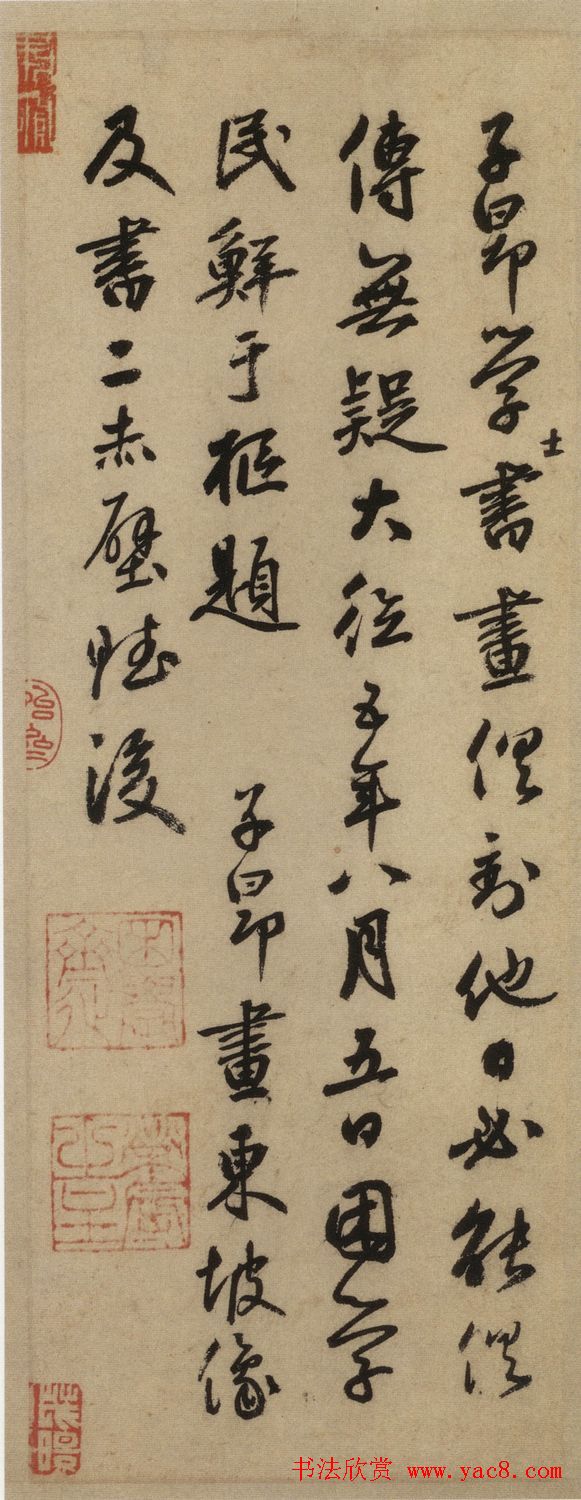 子昂學士書畫俱到他日必能俱
傳無疑大德五年八月五日困學
民鮮于樞題 子昂畫東坡像
及書二赤壁賦後
书法欣赏 www.yac8.com